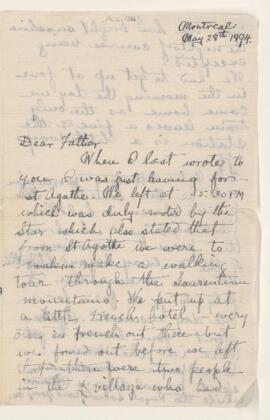 Montreal
May 28th 1894
Dear Father
When I last wrote to
you I was just leaving for
St Agathe. We left at 5:30 PM
which was duly noted by the
Star which also stated that
from St Agathe we were to
make a walking
tour through the Laurentian
mountains. We put up at
a little French hotel - every
one is french out there - but
we found out before we left
there were two people
in the village who had